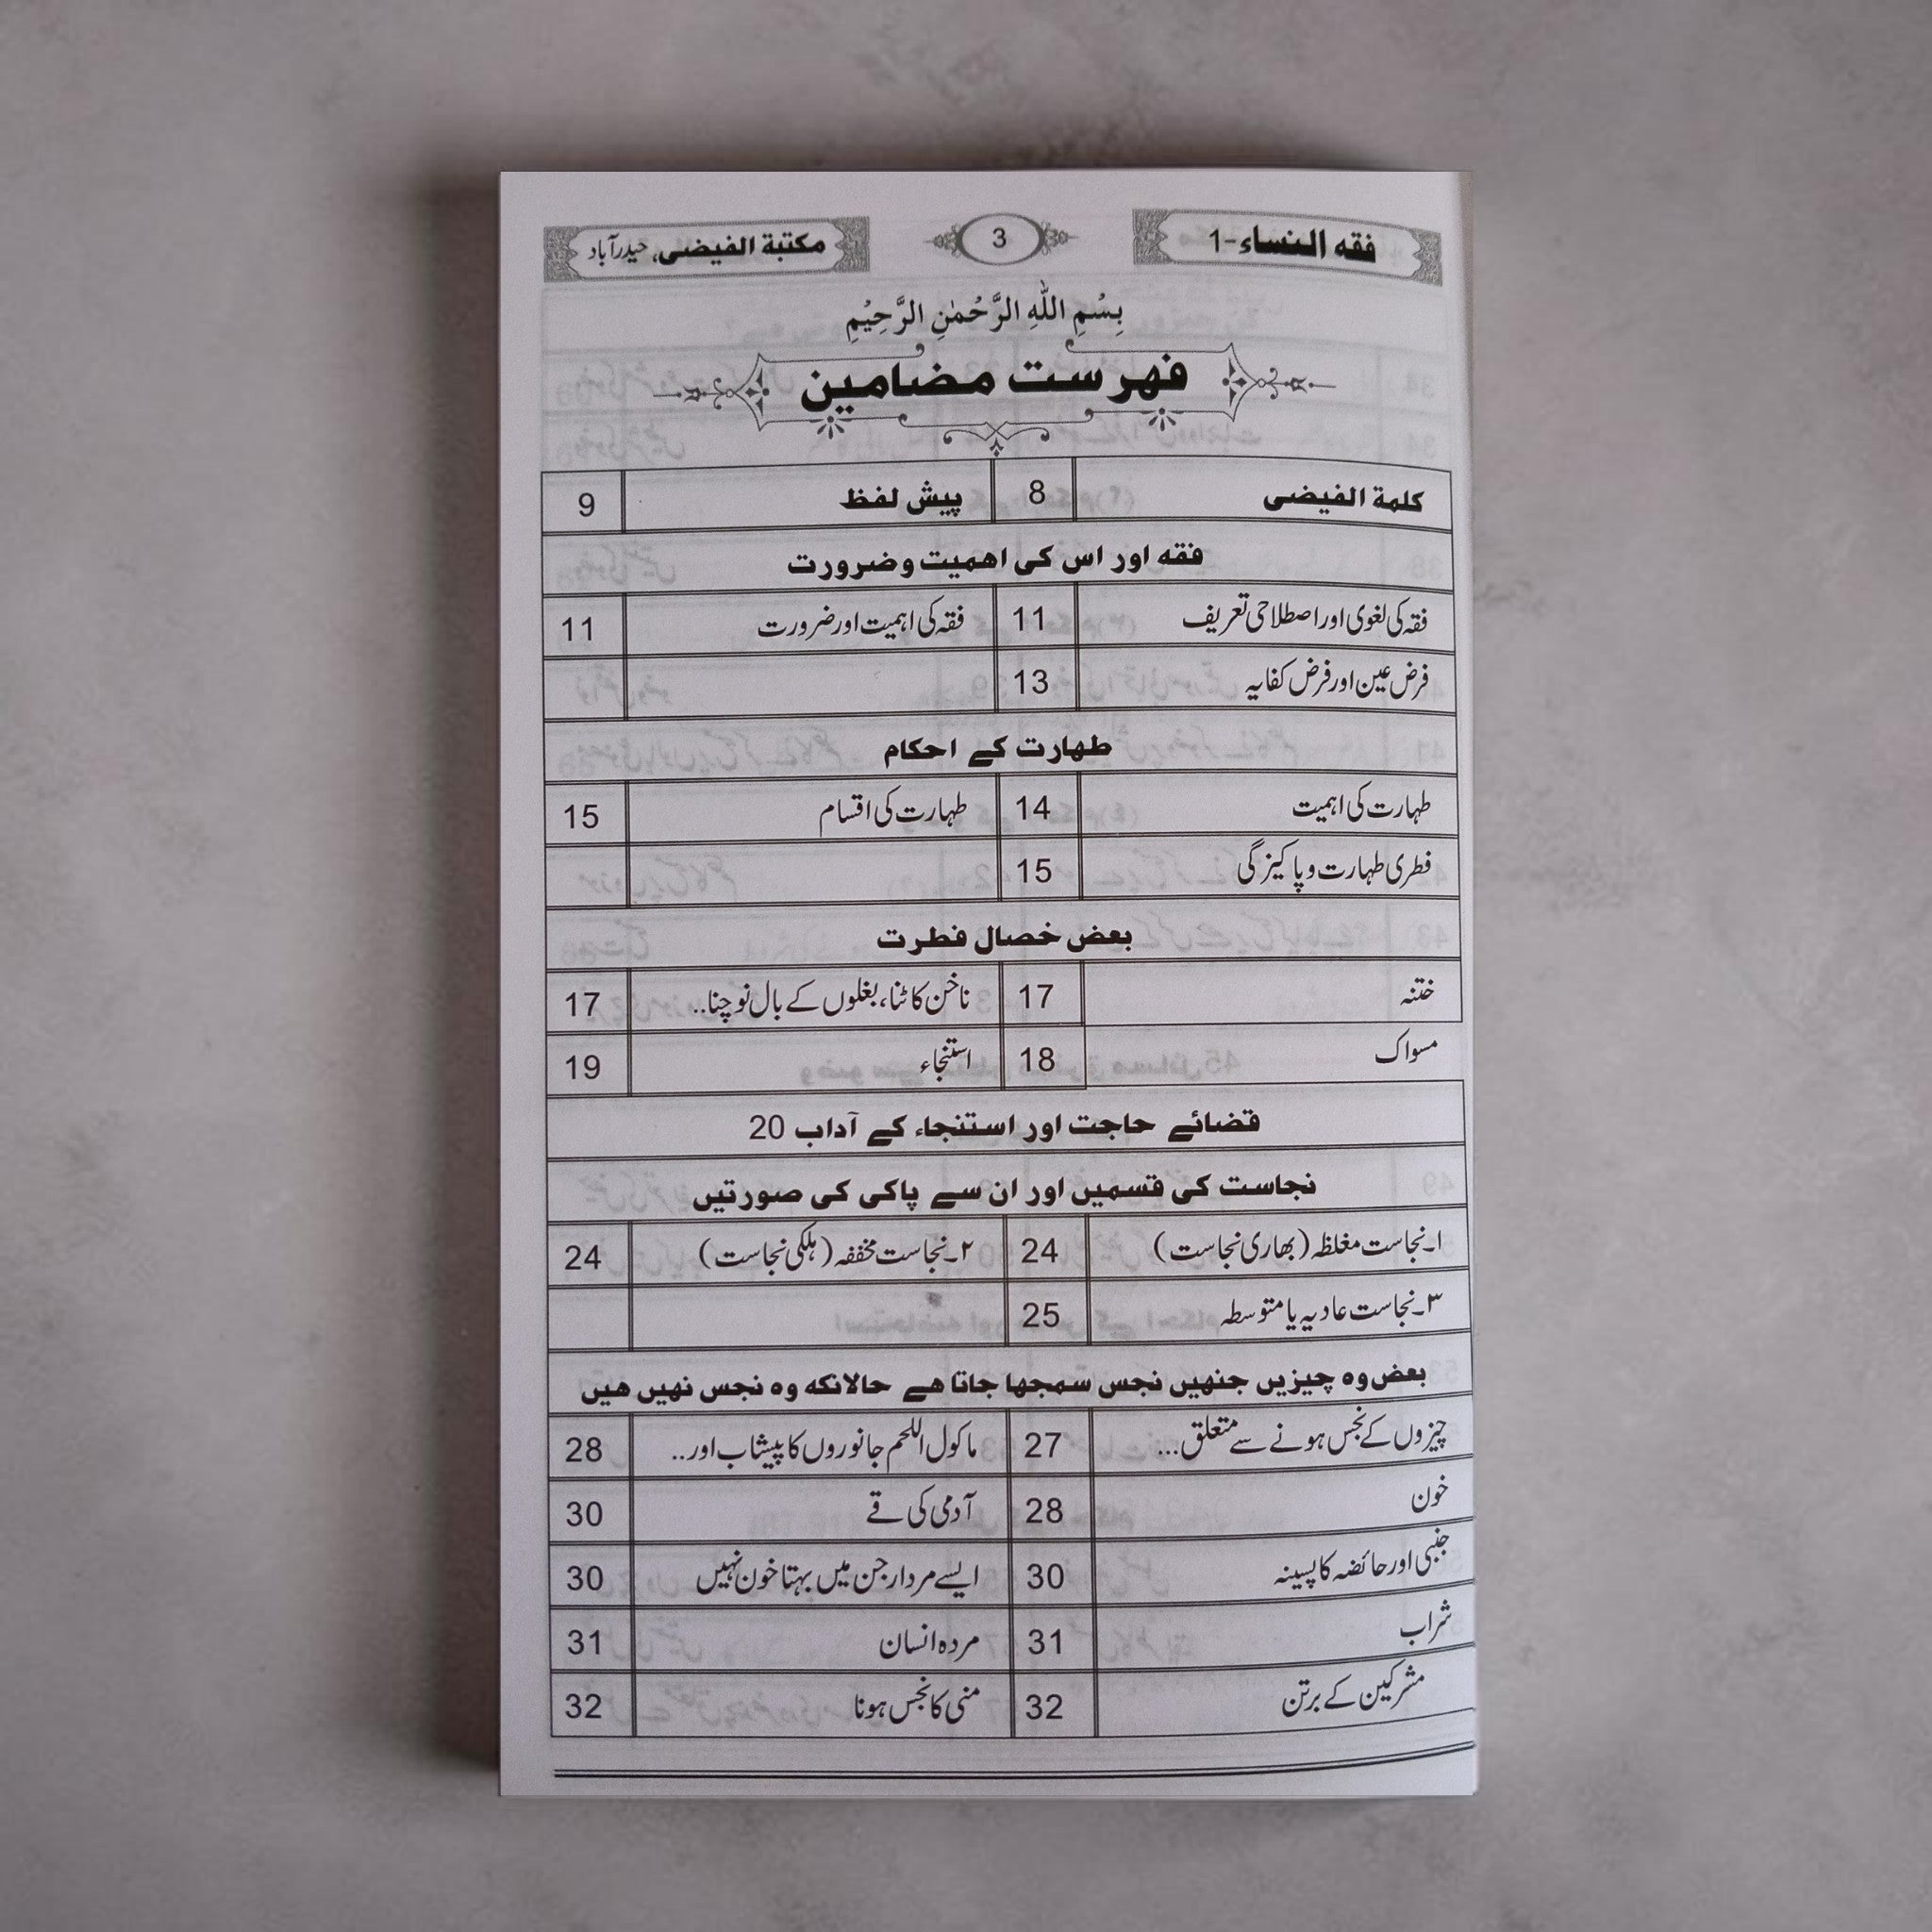 فقه النساء-1 3 مکتبة الفیضی، حیدرآباد
بِسْمِ اللّٰهِ الرَّحْمٰنِ الرَّحِيْمِ
فهرست مضامین
کلمة الفیضی 8 پیش لفظ 9
فقه اور اس کی اهمیت وضرورت
فقہ کی لغوی اور اصطلاحی تعریف 11 فقہ کی اہمیت اور ضرورت 11
فرض عین اور فرض کفایہ 13
طهارت کے احکام
طہارت کی اہمیت 14 طہارت کی اقسام 15
فطری طہارت و پاکیزگی 15
بعض خصال فطرت
ختنہ 17 ناخن کاٹنا، بغلوں کے بال نوچنا.. 17
مسواک 18 استنجاء 19
قضائے حاجت اور استنجاء کے آداب 20
نجاست کی قسمیں اور ان سے پاکی کی صورتیں
۱۔نجاست مغلظہ (بھاری نجاست) 24 ۲۔نجاست مخففہ (ہلکی نجاست) 24
۳۔نجاست عادیہ یا متوسطہ 25
بعض وه چیزیں جنهیں نجس سمجها جاتا هے حالانکه وه نجس نهیں هیں
چیزوں کے نجس ہونے سے متعلق... 27 ماکول اللحم جانوروں کا پیشاب اور.. 28
خون 28 آدمی کی قے 30
جنبی اور حائضہ کا پسینہ 30 ایسے مردار جن میں بہتا خون نہیں 30
شراب 31 مردہ انسان 31
مشرکین کے برتن 32 منی کا نجس ہونا 32